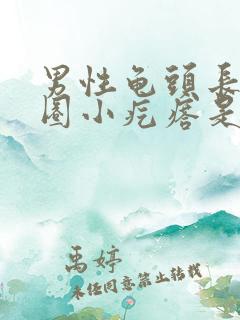 男性龟頭長
圈小疙瘩是
禹婷
未经同意禁止转载